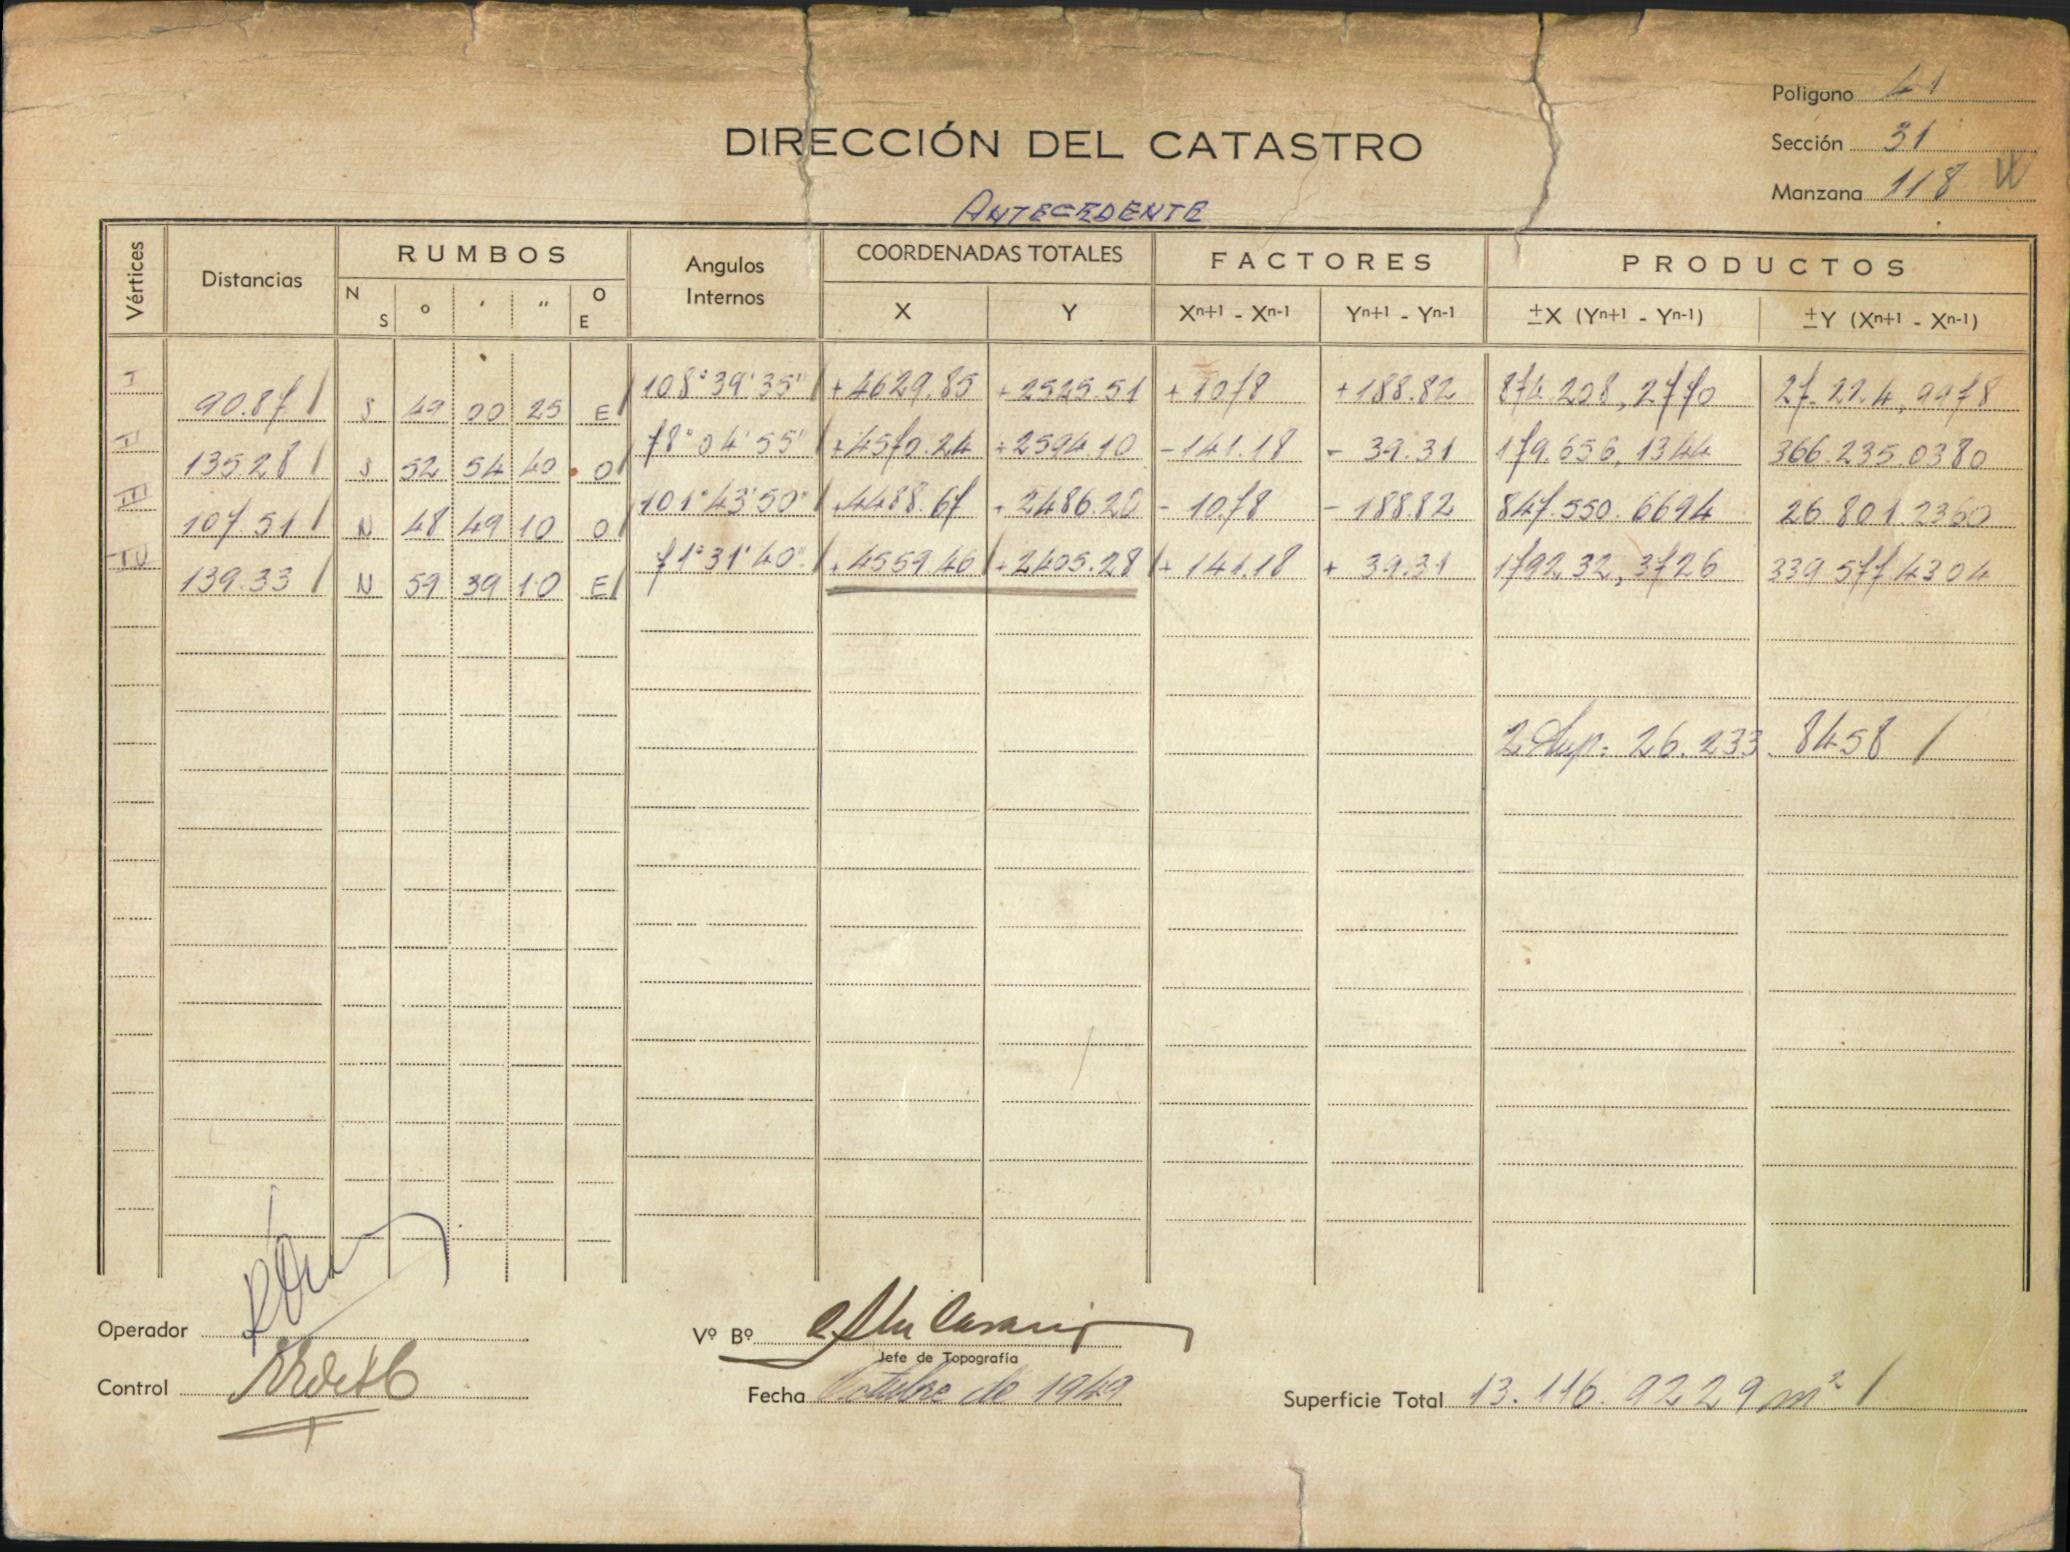 Polígono 41
DIRECCIÓN DEL CATASTRO
Sección 31
Manzana 118 W
ANTECEDENTE
Vértices Distancias RUMBOS Angulos Internos COORDENADAS TOTALES FACTORES PRODUCTOS
N S o ' " O E X Y Xn+1 - Xn-1 Yn+1 - Yn-1 ±X (Yn+1 - Yn-1) ±Y (Xn+1 - Xn-1)
I 108°39'35" / +4629.85 +2525.51 +10.78 +188.82 874.208,2770 27.224,9978
90.87 / S 49 00 25 E /
II 78°04'55" / +4570.24 +2594.10 -141.18 - 39.31 179.656,1344 366.235.0380
135.28 / S 52 54 40 O /
III 101°43'50" / +4488.67 +2486.20 - 10.78 - 188.82 847.550.6694 26.801.2360
107.51 / N 48 49 10 O /
IV 71°31'40" / +4559.46 +2405.28 / + 141.18 + 39.31 179232,3726 339.577.4304
139.33 / N 59 39 10 E /
2 Sup. 26.233.8458 /
Operador
Vº Bº
Jefe de Topografía
Control
Fecha Octubre de 1949
Superficie Total 13.116.9229 m² /